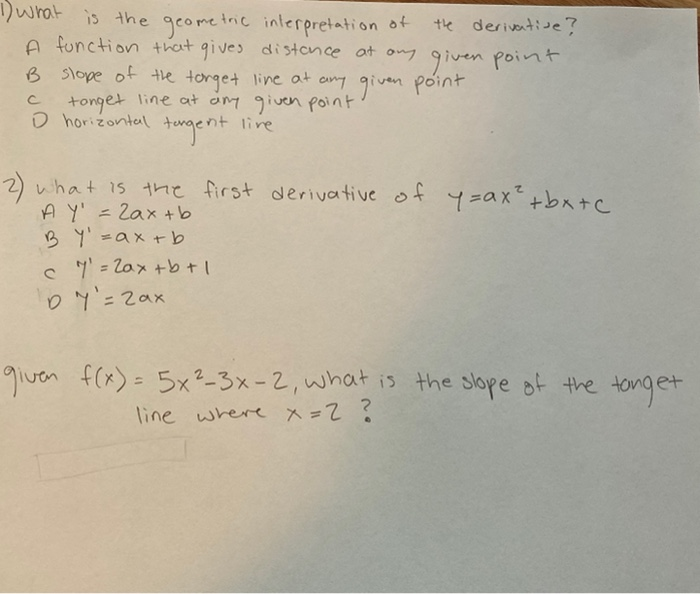 1) what is the geometric interpretation of the derivative?
A function that gives distance at any given point
B slope of the tanget line at any given point
C tanget line at any given point
D horizontal tangent line
2) what is the first derivative of y=ax²+bx+c
A y' = 2ax+b
B y' = ax+b
C y' = 2ax+b+1
D y' = 2ax
given f(x) = 5x²-3x-2, what is the slope of the tanget
line where x=2 ?